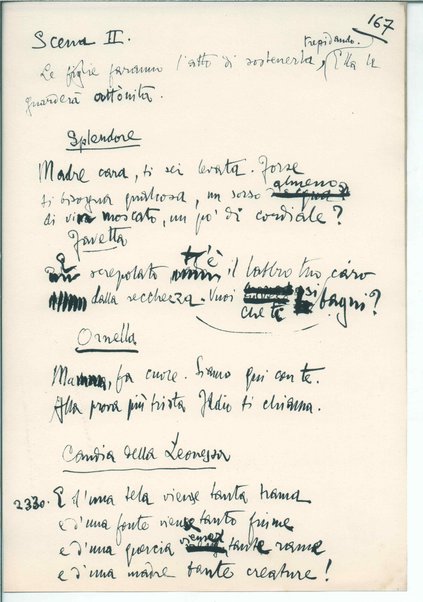 167
Scena II.
trepidando.
Le figlie faranno l'atto di sostenerla, Ella le
guarderà attònita.
Splendore
Madre cara, ti sei levata. Forse
almeno
ti bisogna qualcosa, un sorso
di vin moscato, un po' di cordiale?
Favetta
E screpolato t'è il labbro tuo caro
dalla secchezza. Vuoi che ti si bagni?
Ornella
Mamma, fa cuore. Siamo qui con te.
Alla prova più trista Iddio ti chiama.
Candia della Leonessa
2330. E d'una tela viense tanta trama
e d'una fonte viense tanto fiume
e d'una quercia viense tante rame
e d'una madre tante creature!